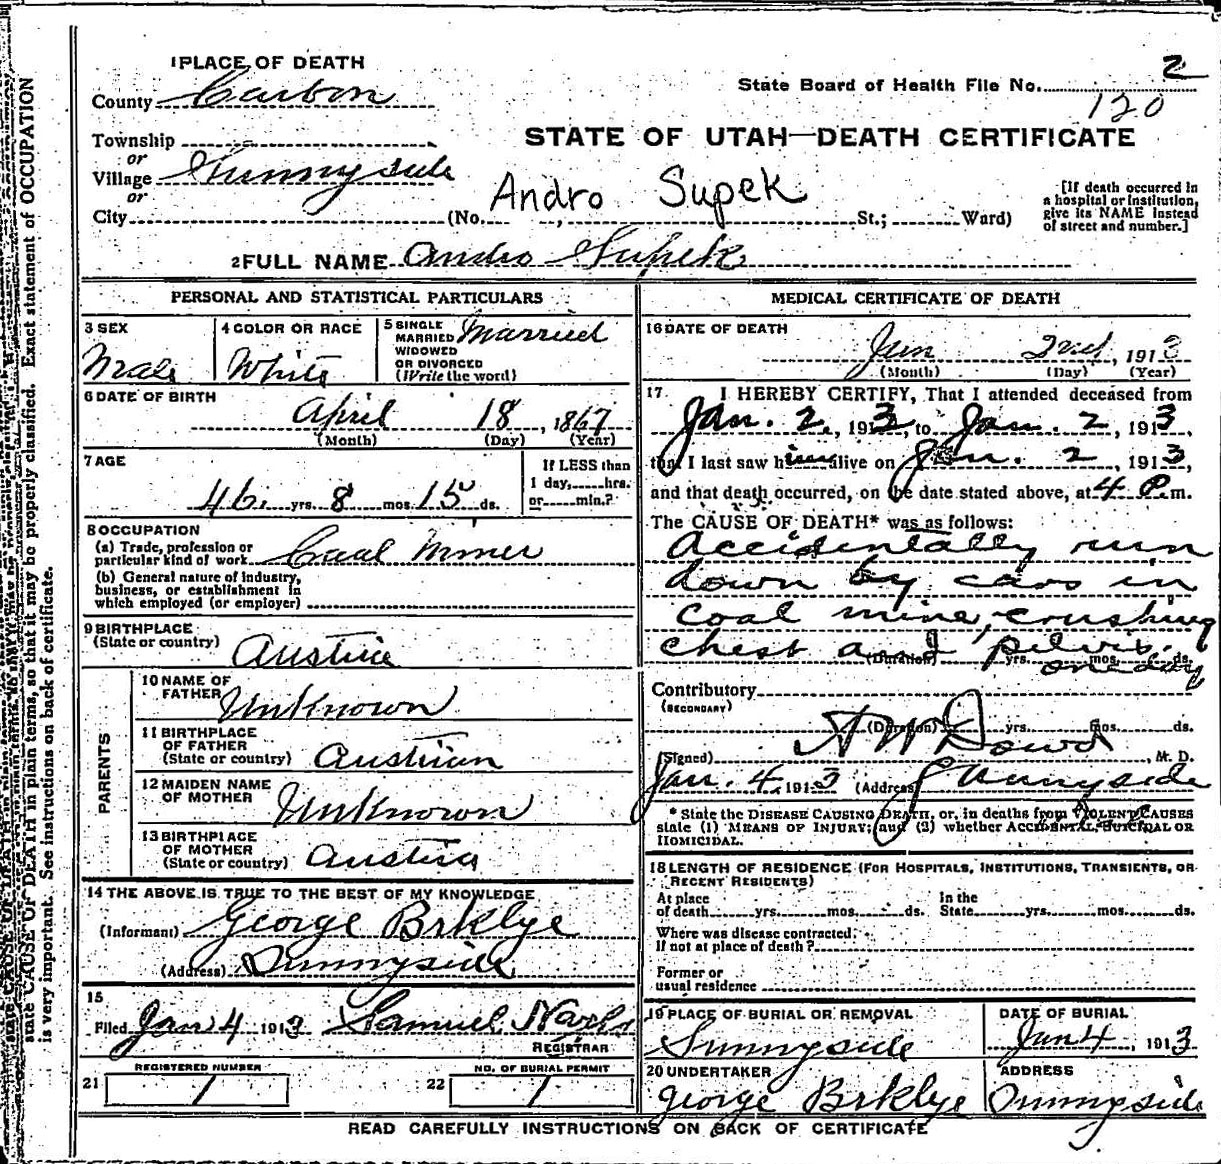 1 PLACE OF DEATH
County Carbon
State Board of Health File No. 2
120
Township
or
Village Sunnyside
or
City (No. , St.; Ward)
STATE OF UTAH—DEATH CERTIFICATE
Andro Supek
[If death occurred in
a hospital or institution,
give its NAME instead
of street and number.]
2 FULL NAME Andro Supek
PERSONAL AND STATISTICAL PARTICULARS
3 SEX
Male
4 COLOR OR RACE
White
5 SINGLE
MARRIED
WIDOWED
OR DIVORCED
(Write the word)
Married
6 DATE OF BIRTH
April 18, 1867
(Month) (Day) (Year)
7 AGE
46 yrs. 8 mos. 15 ds.
If LESS than
1 day, hrs.
or min.?
8 OCCUPATION
(a) Trade, profession or
particular kind of work Coal Miner
(b) General nature of industry,
business, or establishment in
which employed (or employer)
9 BIRTHPLACE
(State or country)
Austria
PARENTS
10 NAME OF
FATHER Unknown
11 BIRTHPLACE
OF FATHER
(State or country) Austrian
12 MAIDEN NAME
OF MOTHER Unknown
13 BIRTHPLACE
OF MOTHER
(State or country) Austria
14 THE ABOVE IS TRUE TO THE BEST OF MY KNOWLEDGE
(Informant) George Brklye
(Address) Sunnyside
15
Filed Jan 4 1913 Samuel
REGISTRAR
REGISTERED NUMBER
21 1
NO. OF BURIAL PERMIT
22 1
MEDICAL CERTIFICATE OF DEATH
16 DATE OF DEATH
Jan 2nd, 1913
(Month) (Day) (Year)
17 I HEREBY CERTIFY, That I attended deceased from
Jan. 2, 1913, to Jan. 2, 1913,
that I last saw him alive on Jan. 2, 1913,
and that death occurred, on the date stated above, at 4 P.m.
The CAUSE OF DEATH* was as follows:
Accidentally run
down by cars in
coal mine, crushing
chest and pelvis.
(Duration) yrs. mos. ds.
one day
Contributory
(SECONDARY)
(Duration) yrs. mos. ds.
(Signed) A W Dowd, M. D.
Jan. 4, 1913 (Address) Sunnyside
* State the DISEASE CAUSING DEATH, or, in deaths from VIOLENT CAUSES
state (1) MEANS OF INJURY; and (2) whether ACCIDENTAL, SUICIDAL OR
HOMICIDAL.
18 LENGTH OF RESIDENCE (FOR HOSPITALS, INSTITUTIONS, TRANSIENTS, OR
RECENT RESIDENTS)
At place
of death yrs. mos. ds.
In the
State yrs. mos. ds.
Where was disease contracted,
if not at place of death?
Former or
usual residence
19 PLACE OF BURIAL OR REMOVAL
Sunnyside
DATE OF BURIAL
Jan 4, 1913
20 UNDERTAKER
George Brklye
ADDRESS
Sunnyside
READ CAREFULLY INSTRUCTIONS ON BACK OF CERTIFICATE
state CAUSE OF DEATH in plain terms, so that it may be properly classified. Exact statement of OCCUPATION
is very important. See instructions on back of certificate.